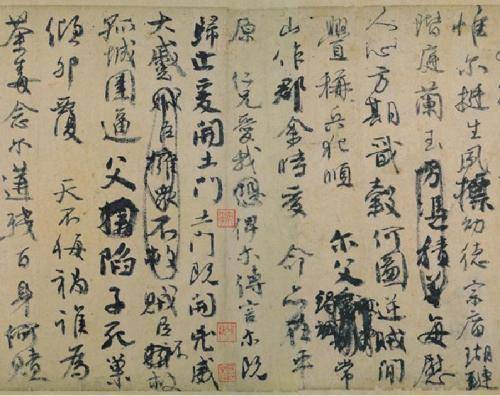 惟尔挺生夙標幼德宗廟瑚璉
階庭蘭玉方憑積善每慰
人心方期戩穀何圖逆賊間
釁稱兵犯順尔父竭誠常
山作郡余時受命亦在平
原仁兄愛我恐俾尔傳言尔既
歸止爰開土門土門既開凶威
大蹙賊臣擁眾不救賊臣不救
孤城圍逼父陷子死巢
傾卵覆天不悔禍誰為
荼毒念尔遘殘百身何贖